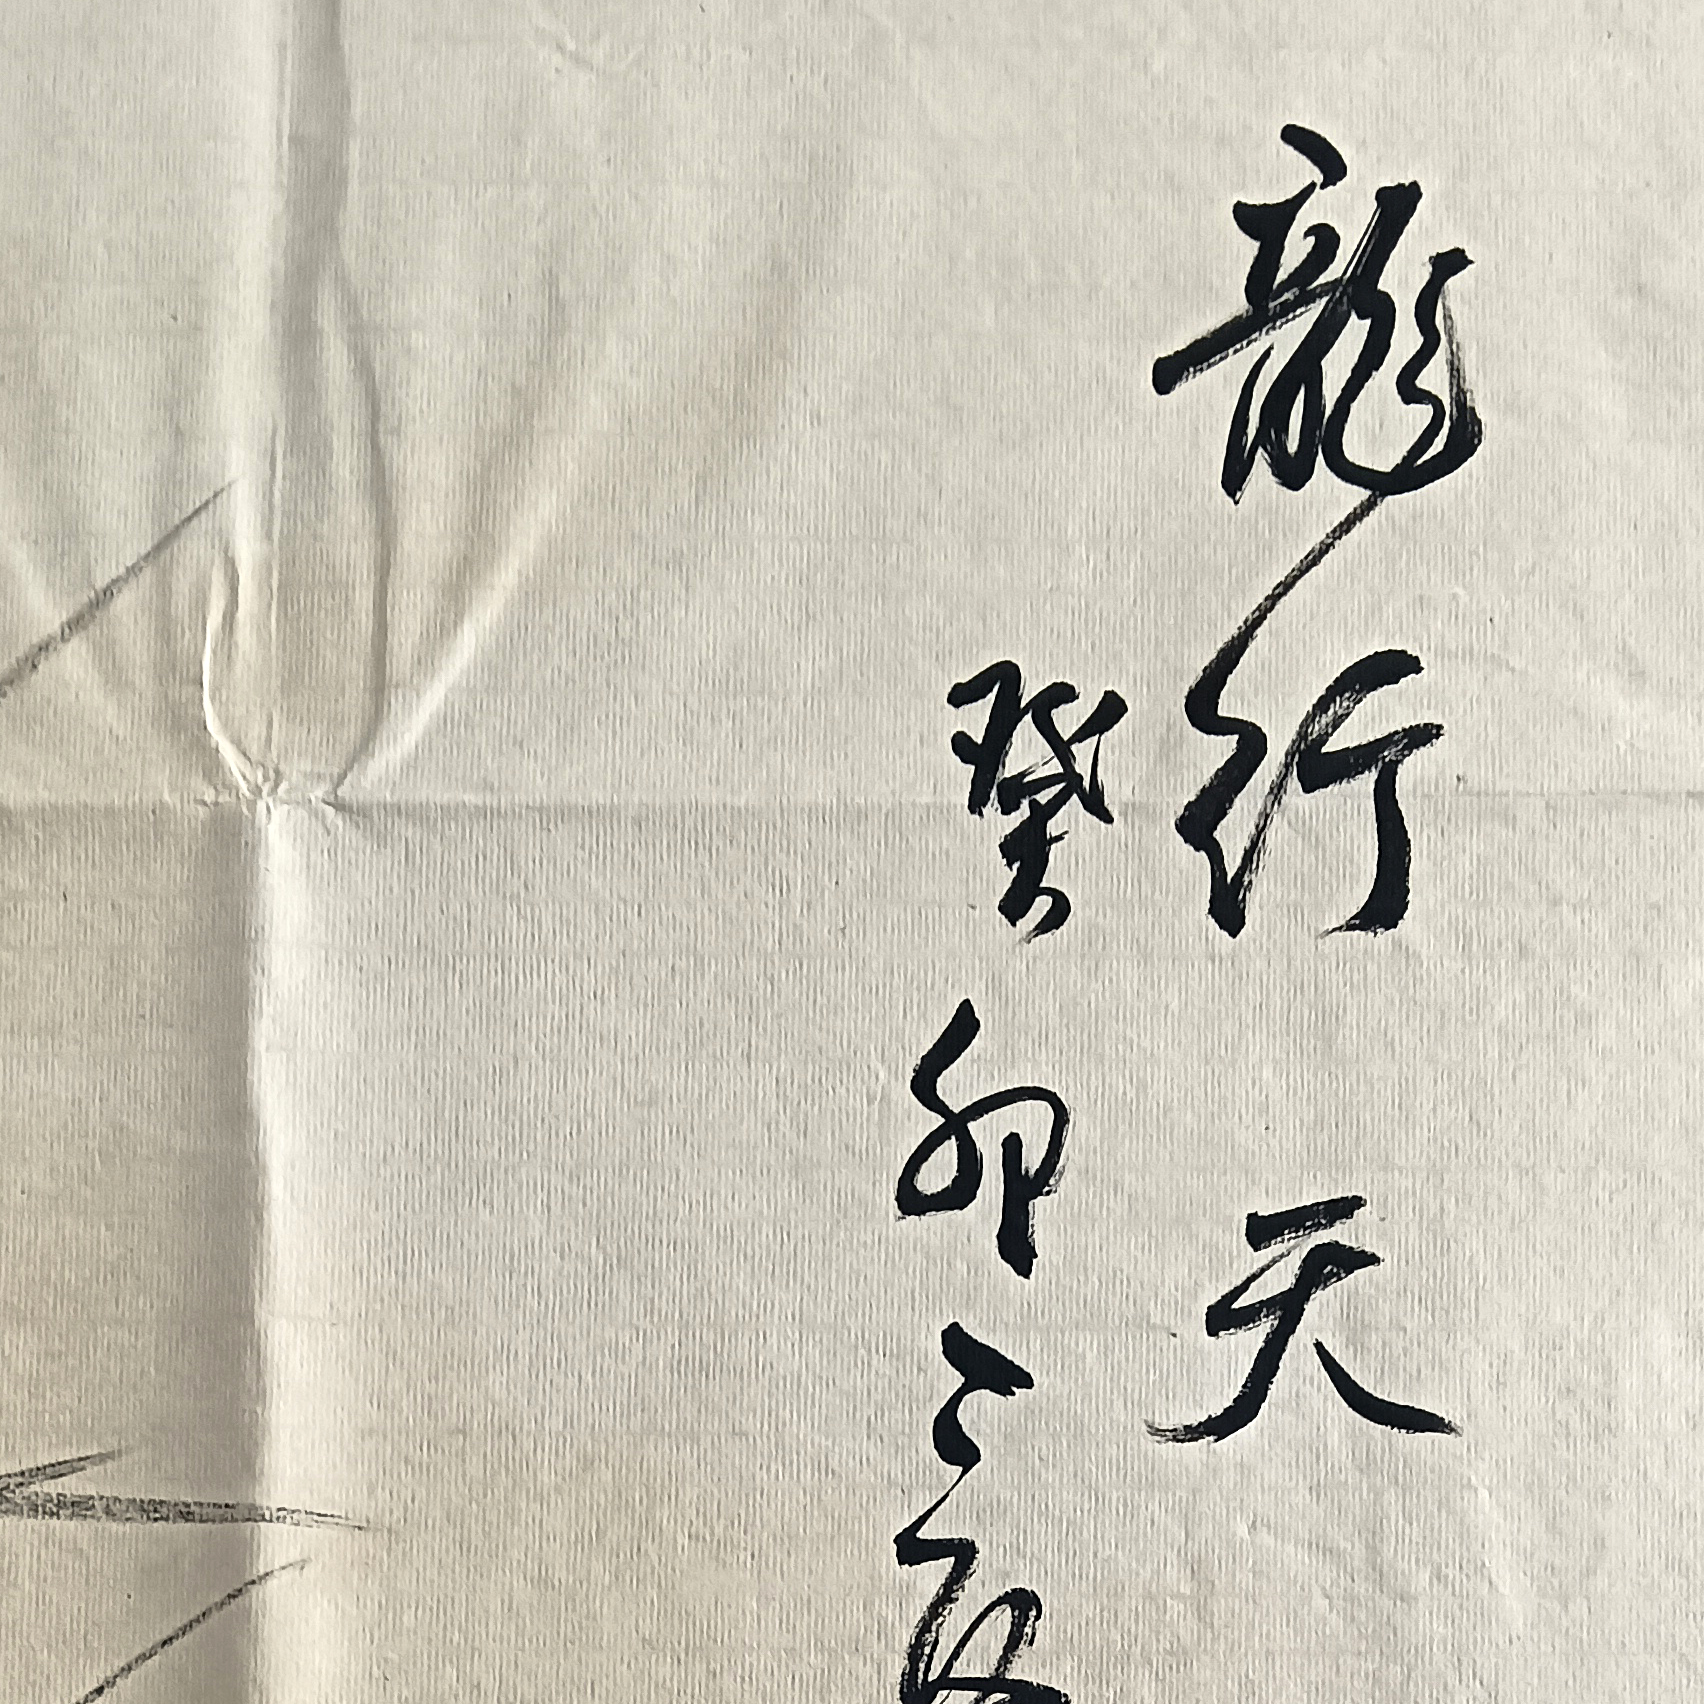 龍行天
癸卯之